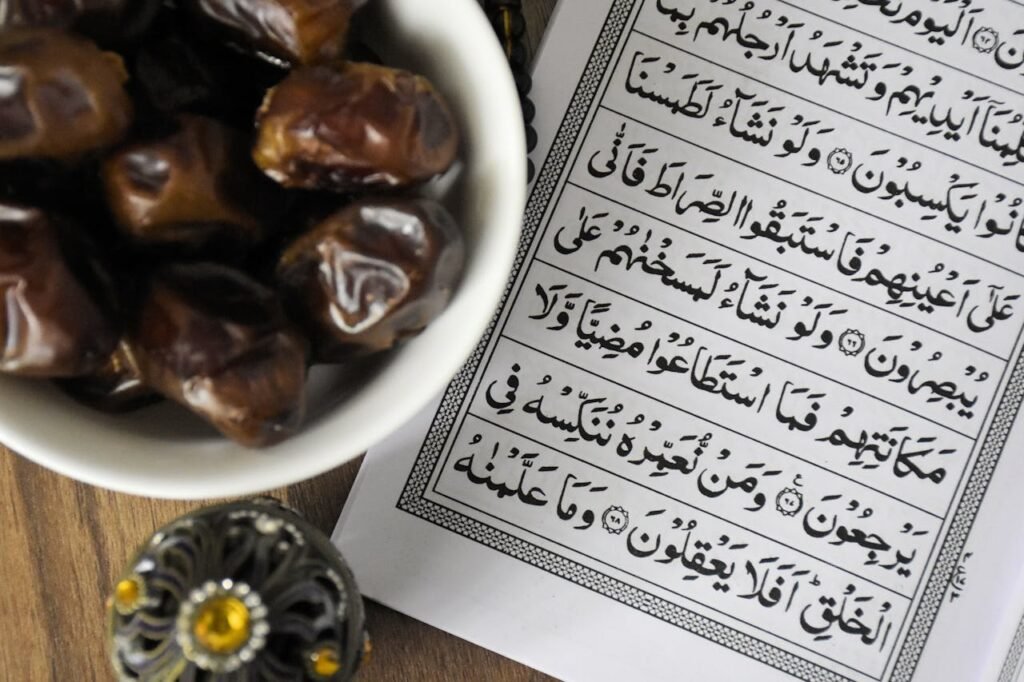 اَلْيَوْمَ
اَيْدِيْهِمْ وَتَشْهَدُ اَرْجُلُهُمْ بِمَا
كَانُوْا يَكْسِبُوْنَ ﴿٦٥﴾ وَلَوْ نَشَآءُ لَطَمَسْنَا
عَلٰٓى اَعْيُنِهِمْ فَاسْتَبَقُوا الصِّرَاطَ فَاَنّٰى
يُبْصِرُوْنَ ﴿٦٦﴾ وَلَوْ نَشَآءُ لَمَسَخْنٰهُمْ عَلٰى
مَكَانَتِهِمْ فَمَا اسْتَطَاعُوْا مُضِيًّا وَّلَا
يَرْجِعُوْنَ ﴿٦٧﴾ وَمَنْ نُّعَمِّرْهُ نُنَكِّسْهُ فِى
الْخَلْقِ اَفَلَا يَعْقِلُوْنَ ﴿٦٨﴾ وَمَا عَلَّمْنٰهُ